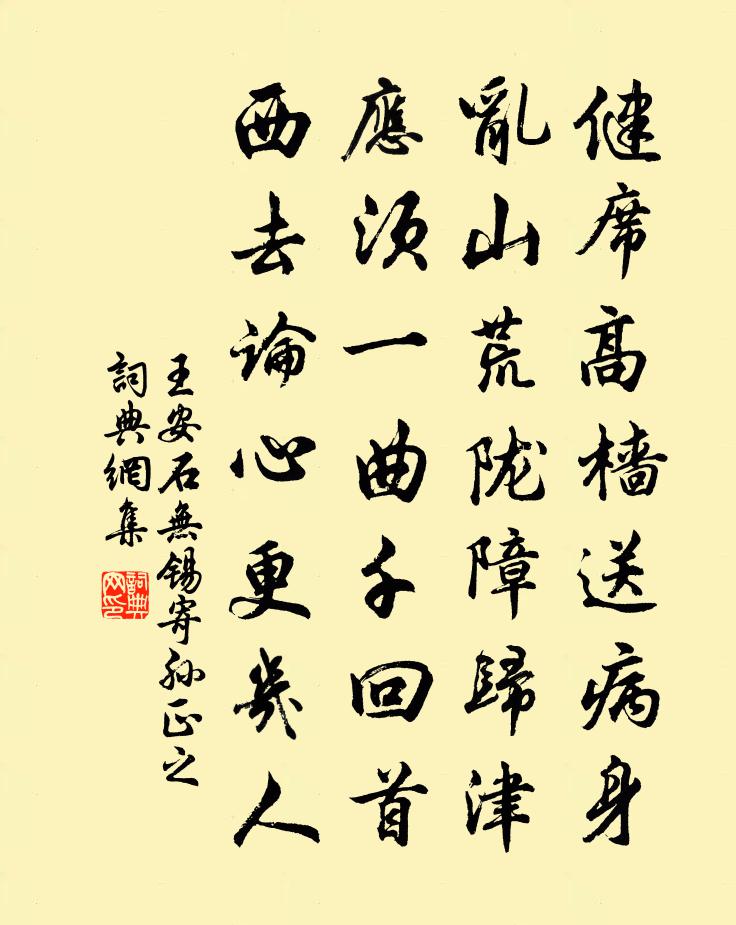 健席高檣送病身
亂山荒陇障歸津
應須一曲千回首
西去論心更幾人
王安石無锡寄孙正之
詞典網集
詞典網印